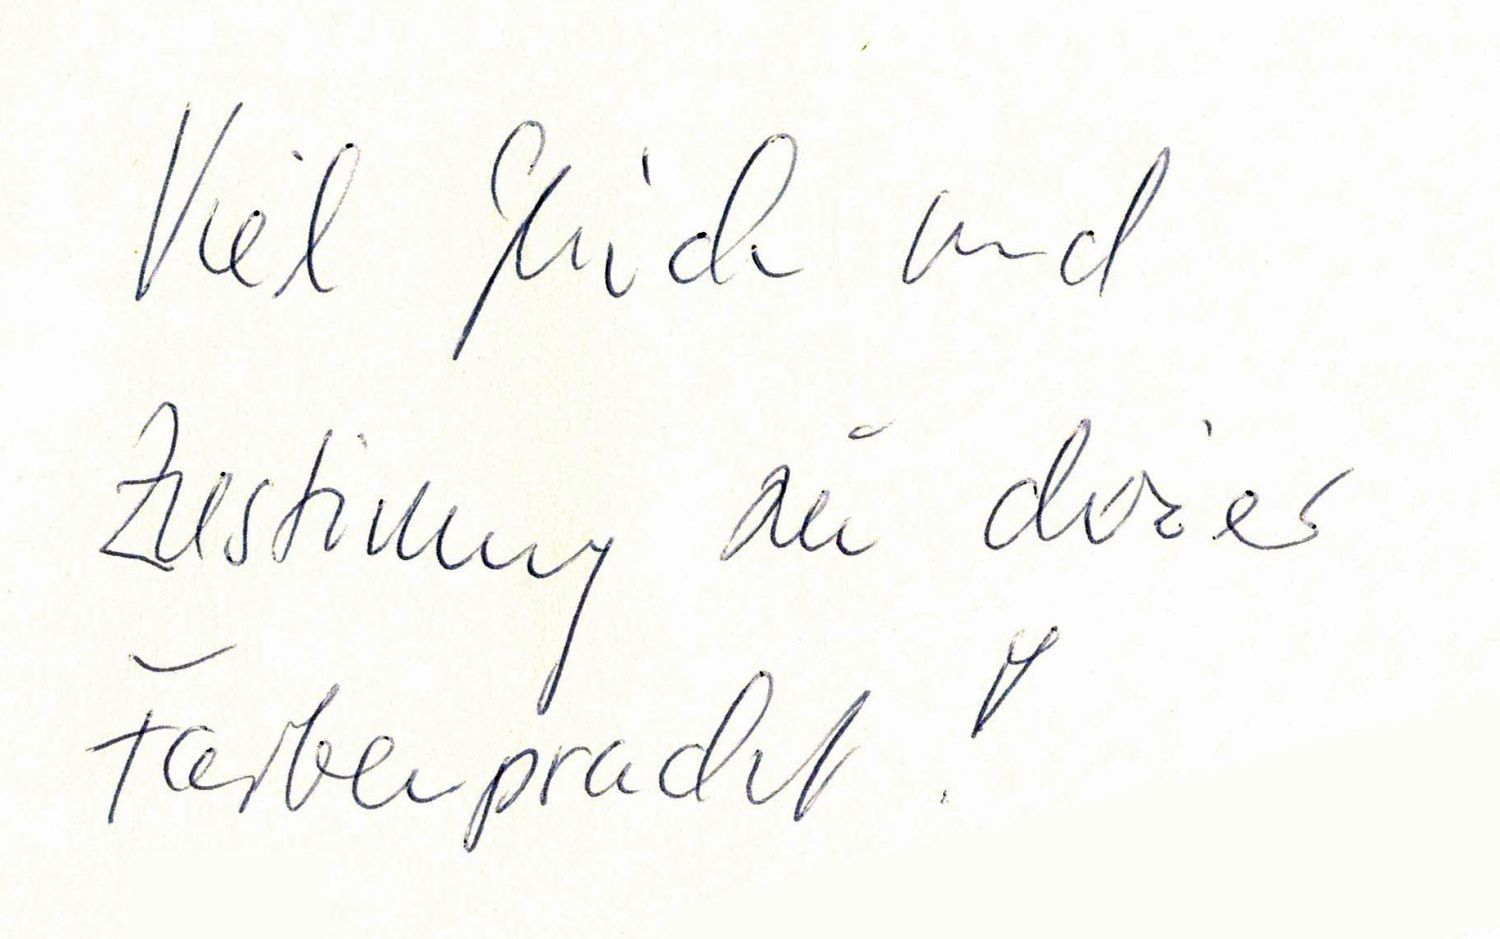 Viel Glück und
Zustimmung zu dieser
Farbenpracht!